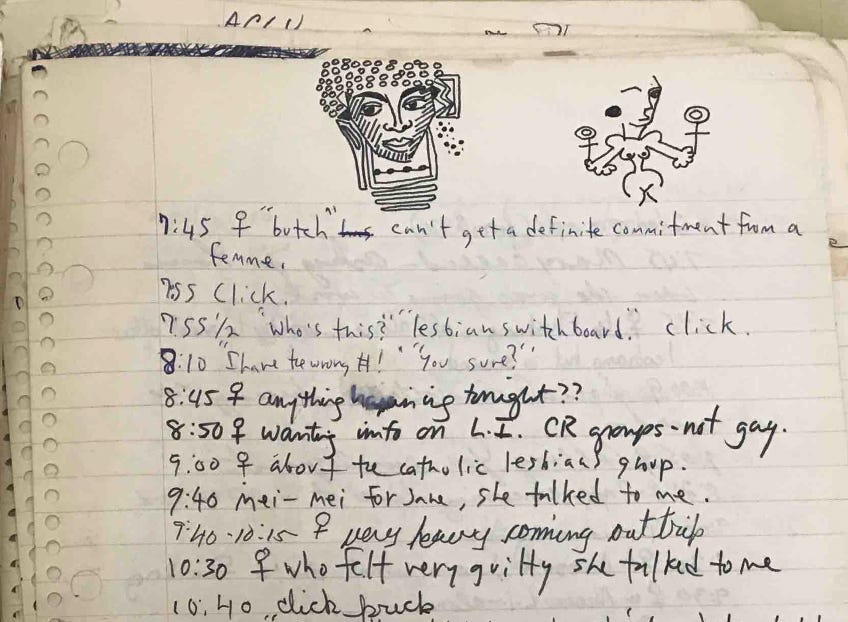 7:45 ♀ "butch" can't get a definite commitment from a
femme.
7:55 Click.
7:55 1/2 "Who's this?" "lesbian switchboard." click.
8:10 "I have the wrong #!" "You sure?"
8:45 ♀ anything happening tonight??
8:50 ♀ wanting info on L.I. CR groups - not gay.
9:00 ♀ about the catholic lesbians group.
9:40 mei-mei for Jane, she talked to me.
9:40-10:15 ♀ very heavy coming out trip
10:30 ♀ who felt very guilty she talked to me
10:40 click prick